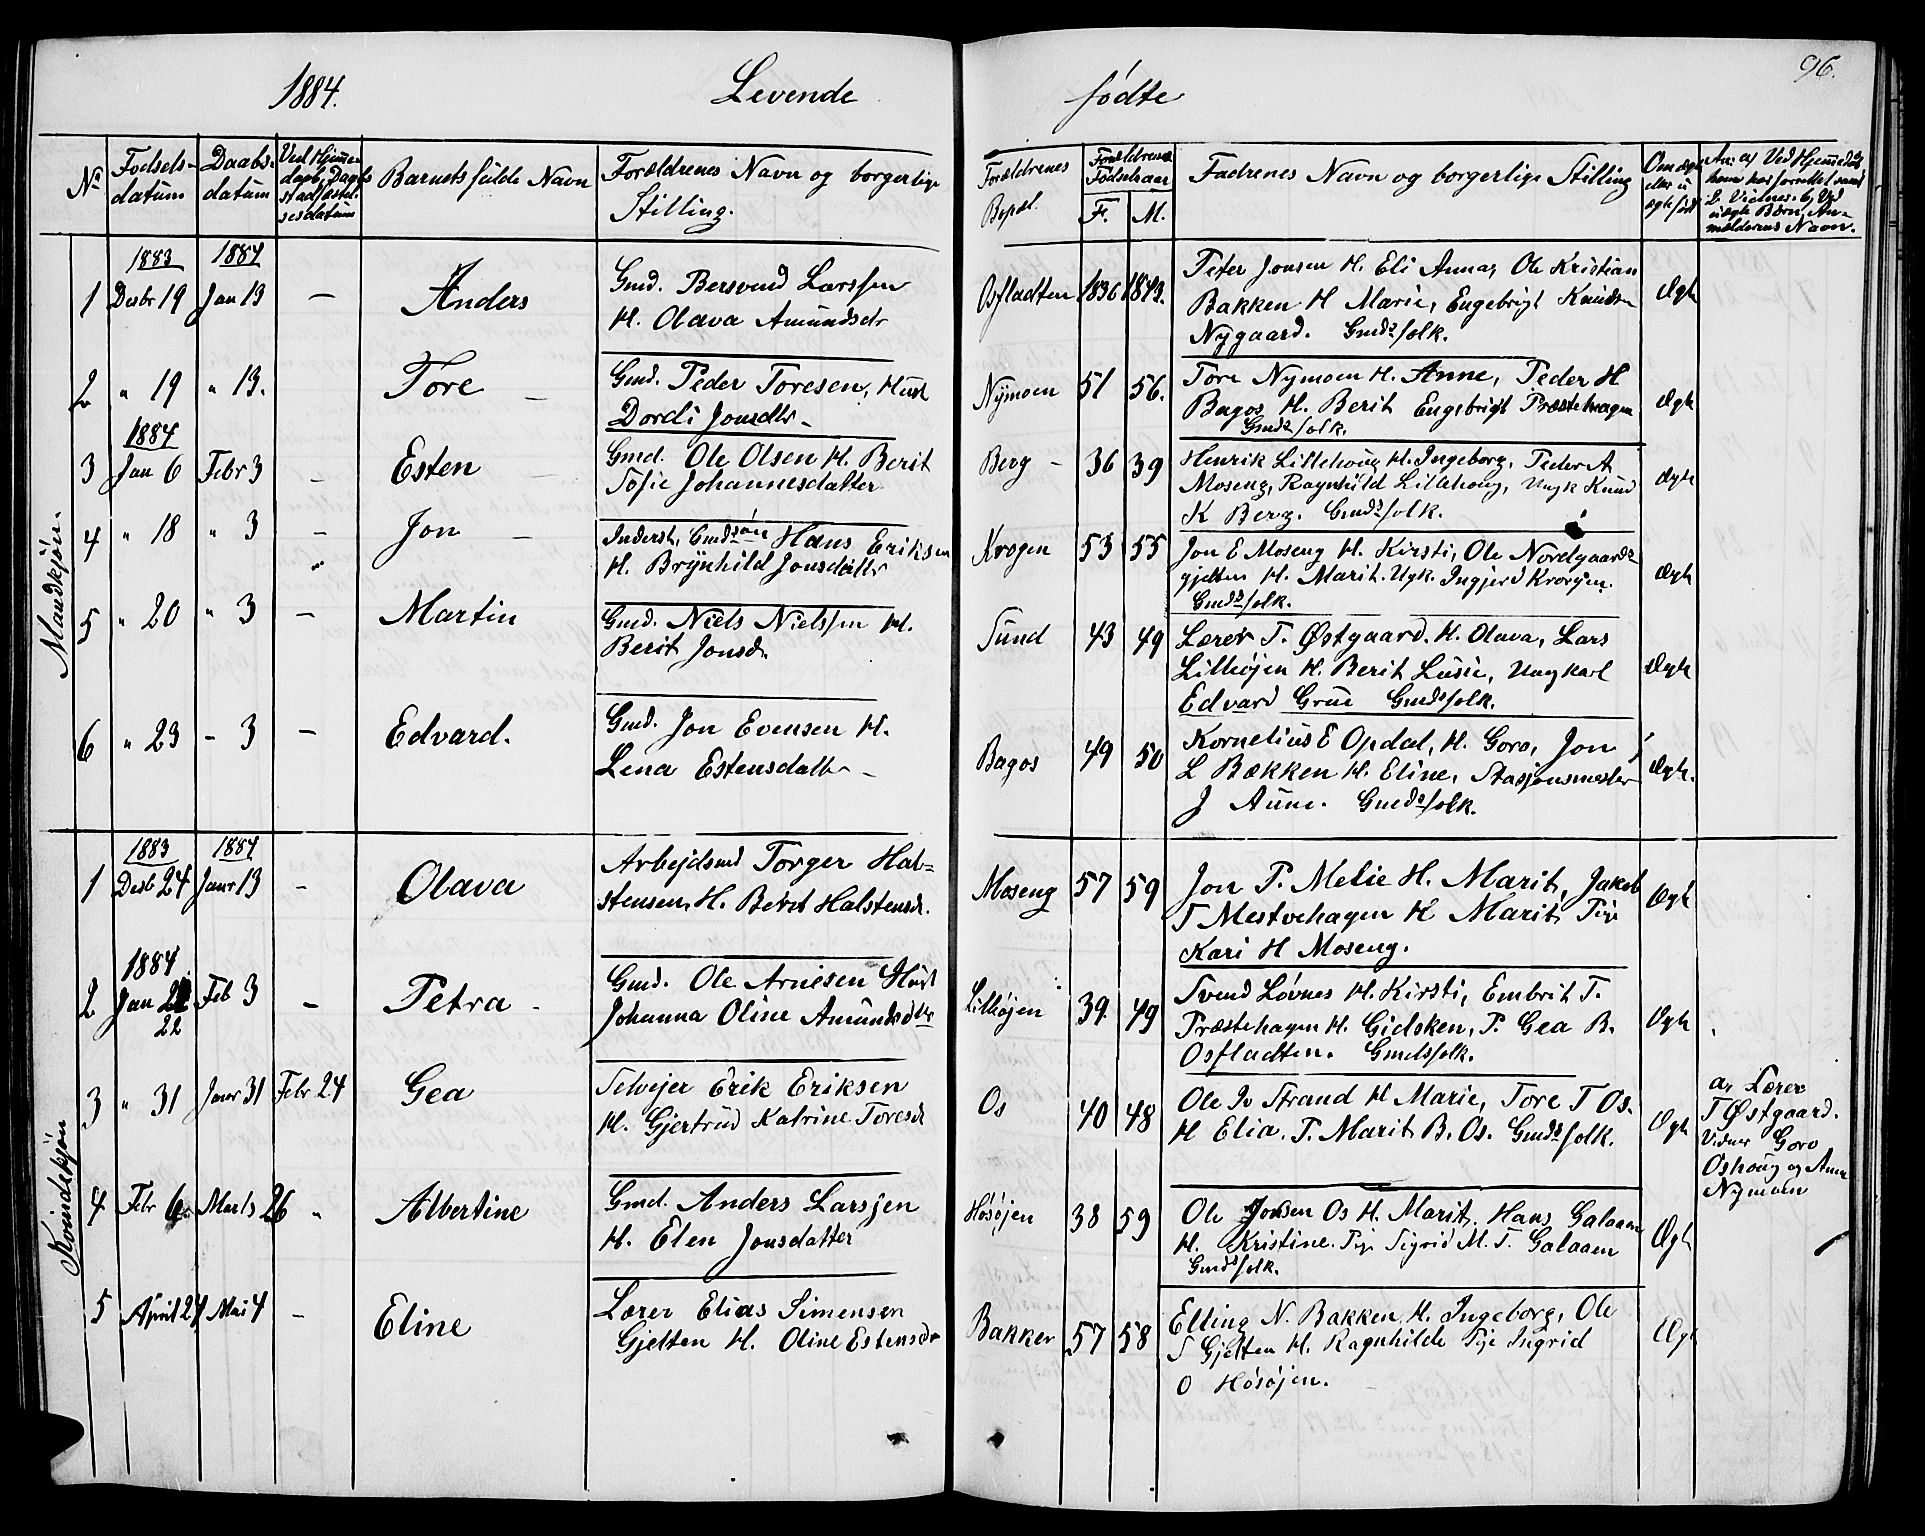 1884. Levende fødte 96.
No Fødsels-datum Daabs-datum Ved Hjemme-daab, Daabs stadfæstel-sesdatum Barnets fulde Navn Forældrenes Navn og borgerlige Stilling. Forældrenes Bopæl. Forældrenes Fødselsaar F. M. Fadrenes Navn og borgerlige Stilling Om ægte eller uægte født
Mandkjøn.
1883 1884
1 Desbr 19 Jan 13 — Anders
Gmd. Bersvend Larssen
H. Olava Amundsdr
Osfladten 1836 1843.
Peter Jonsen H. Eli Anna, Ole Kristian
Bakken H Marie, Engebrigt Knudsn
Nygaard. Gmdsfolk.
Ægte
2 " 19 " 13. Tore —
Gmd. Peder Toresen, Hust
Dordi Jonsdtr.
Nymoen 51 56.
Tore Nymoen H. Anne, Peder H
Bagos H. Berit Engebrigt Præstehagen
Gmdsfolk.
Ægte
1884
3 Jan 6 Febr 3 — Esten
Gmd. Ole Olsen H. Berit
Sofie Johannesdatter
Berg — 36 39
Henrik Lillehoug H. Ingeborg, Peder A
Moseng, Ragnhild Lillehoug, Ungk Knud
K Berg. Gmdsfolk.
Ægte
4 " 18 " 3 — Jon —
Inderst, Gmdsøn Hans Eriksen
H. Brynhild Jonsdattr
Krogen 53 55
Jon E Moseng H. Kirsti, Ole Nordgaards-
gjelten H. Marit. Ugk. Ingjerd Krogen.
Gmdsfolk.
Ægte
5 " 20 " 3 — Martin
Gmd. Niels Nielssen H.
Berit Jonsd.
Sund 43 49
Lærer T. Østgaard. H. Olava, Lars
Lilløjen H. Berit Lusie, Ungkarl
Edvard Grue Gmdsfolk.
Ægte
6 " 23 - 3 — Edvard.
Gmd. Jon Evensen H.
Lena Estensdattr
Bagos 49 50
Kornelius E Opdal, H. Goro, Jon
L Bækken H. Eline, Stasjonsmester
J Aune. Gmdsfolk.
Ægte.
Kvindekjøn
1883 1884
1 Desb 24 Janr 13 - Olava
Arbejdsmd Torger Hal-
stensen, H. Berit Halstensd.
Moseng 57 59
Jon P. Melie H. Marit, Jakob
T Mestvehagen H Marit, Pige
Kari H Moseng.
Ægte
1884
2 Jan 22 Feb 3 — Petra -
22
Gmd. Ole Arnesen Hust
Johanna Oline Amundsdtr
Lilløjen 39 49
Svend Løvnes H. Kirsti, Embrit T.
Præstehagen H. Gidsken, P. Gea B.
Osfladten. Gmdsfolk.
Ægte
3 " 31 Janr 31 Febr 24 Gea
Selvejer Erik Eriksen
H. Gjertrud Katrine Toresd
Os 40 48
Ole Iv Strand H Marie, Tore T Os.
H Elia. P. Marit B. Os. Gmdsfolk.
Ægte
a, Lærer
T Østgaard.
Vidner Goro
Oshoug og Anne
Nymoen
4 Febr 6 Marts 26 " Albertine
Gmd. Anders Larsen
H. Elen Jonsdatter
Høsøjen 38 59
Ole Jonsen Os H. Marit. Hans Galaaen
H. Kristine. Pige Sigrid M. T. Galaaen
Gmdsfolk.
Ægte
5 April 24 Mai 4 - Eline
Lærer Elias Simensen
Gjelten H. Oline Estensdr
Bakken 57 58
Elling N. Bakken H. Ingeborg, Ole
S Gjelten H. Ragnhilde Pige Ingrid
O Høsøjen.
Ægte